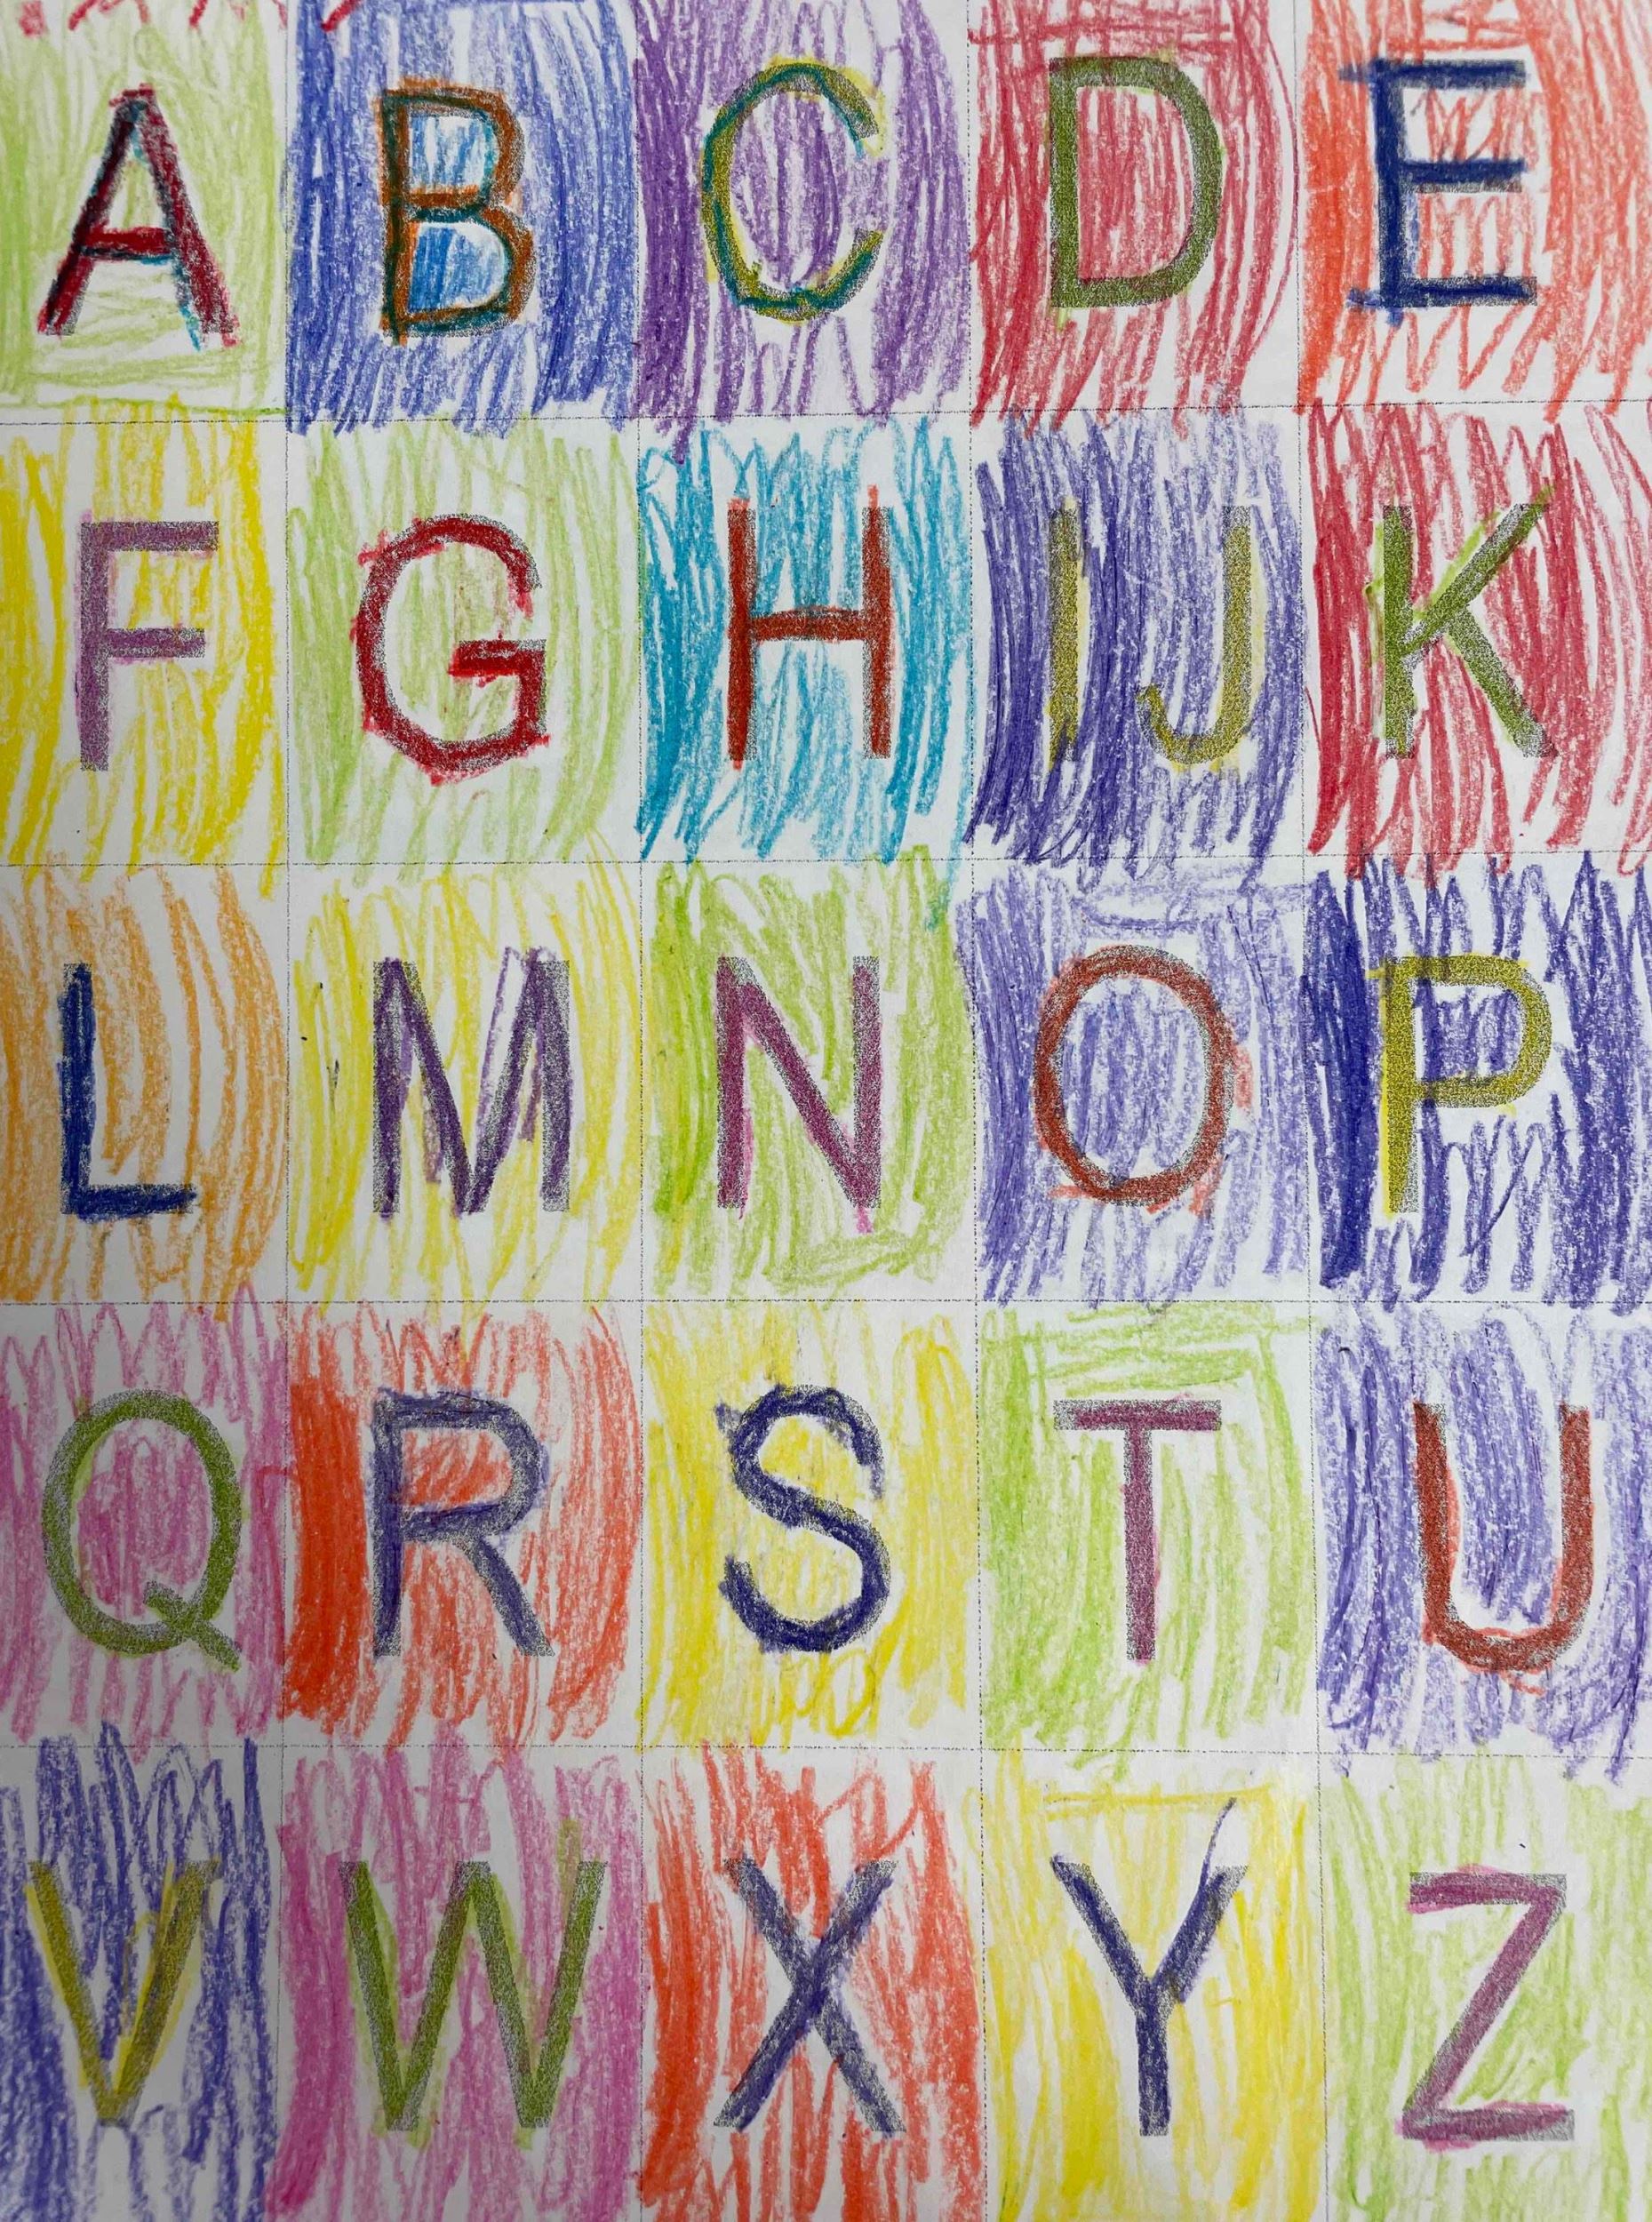 A B C D E
F G H IJ K
L M N O P
Q R S T U
V W X Y Z